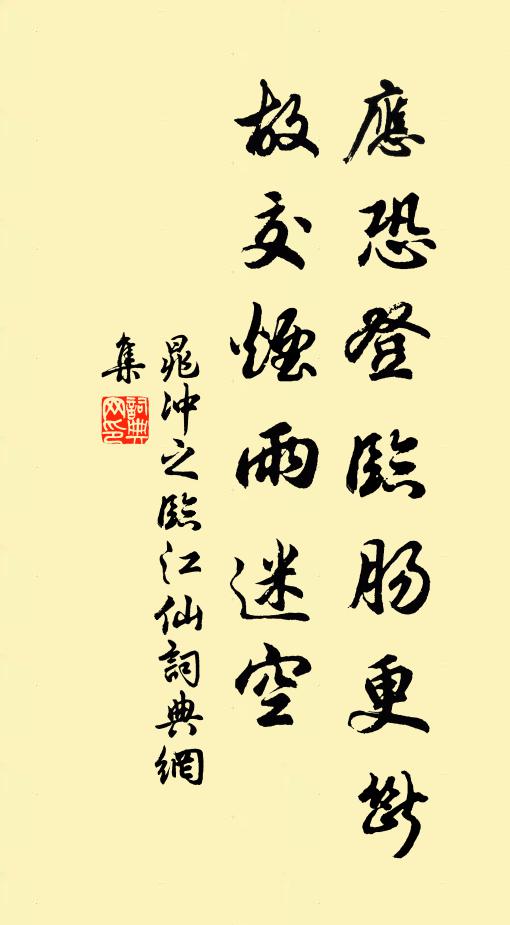 應恐登臨腸更斷
故交煙雨迷空
晁冲之臨江仙詞典網
集
詞典網印